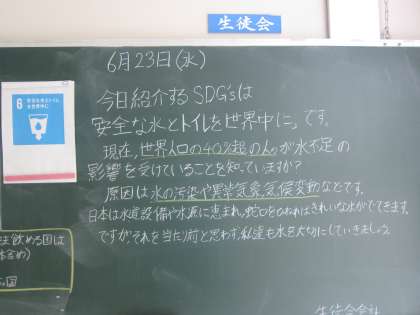 生徒会
6月23日(水)
6 安全な水とトイレを世界中に
今日紹介するSDG'sは
安全な水とトイレを世界中に。です。
現在、世界人口の40%超の人々が水不足の
影響を受けていることを知っていますか?
原因は水の汚染や異常気象、気候変動などです。
日本は水道設備や水源に恵まれ、蛇口をひねればきれいな水がでてきます。
ですが、それを当たり前と思わず、私達も水を大切にしていきましょう。
飲める国は